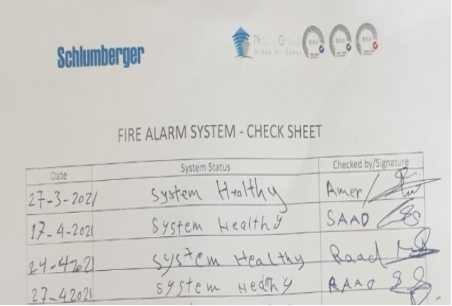 Schlumberger
FIRE ALARM SYSTEM - CHECK SHEET
Date System Status Checked by/Signature
27-3-2021 System Healthy Amer
17-4-2021 System Healthy SAAD
24-4-2021 System Healthy Raad
27-4-2021 System Healthy RAAD